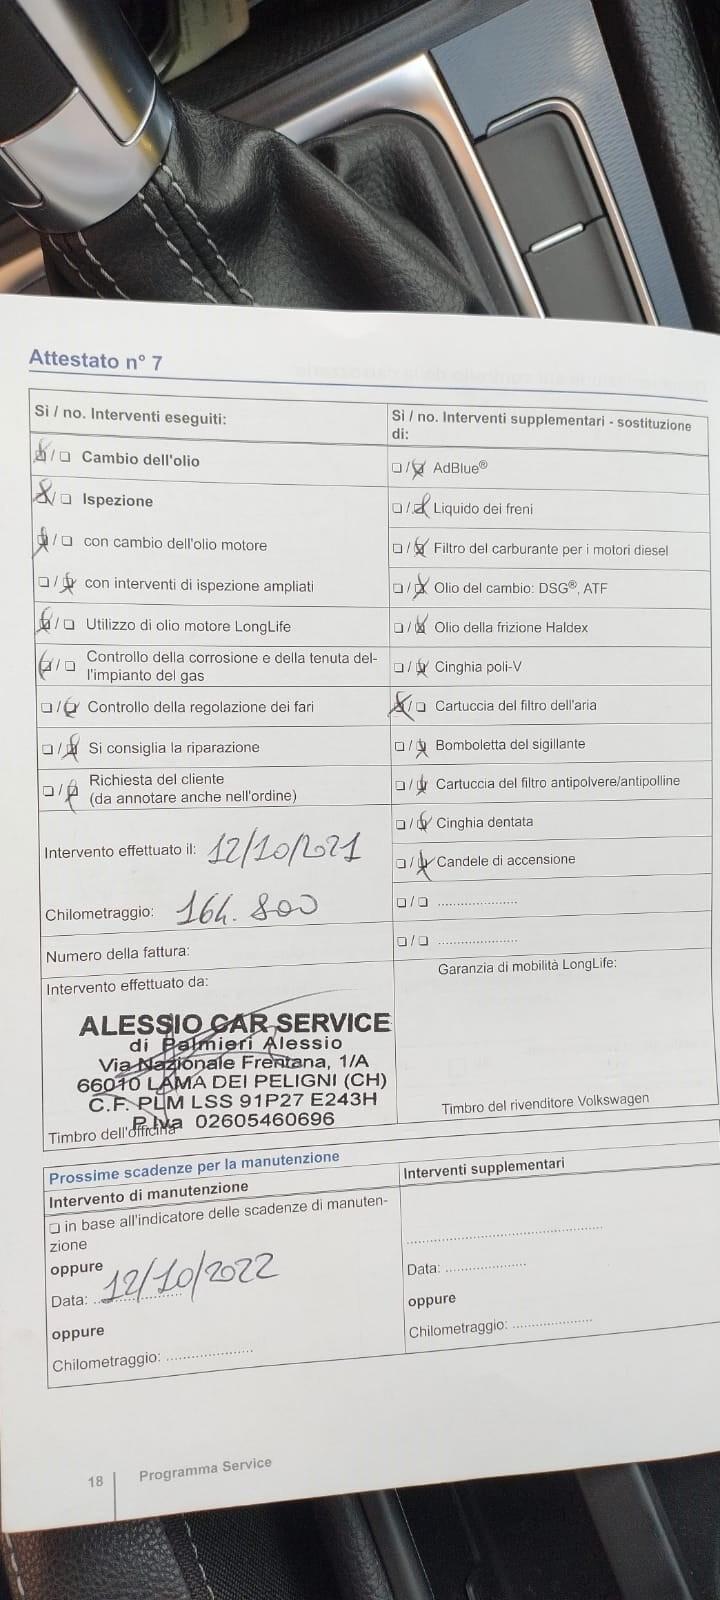 Attestato n° 7
Sì / no. Interventi eseguiti:
☒/☐ Cambio dell'olio
☒/☐ Ispezione
☒/☐ con cambio dell'olio motore
☐/☒ con interventi di ispezione ampliati
☒/☐ Utilizzo di olio motore LongLife
☒/☐ Controllo della corrosione e della tenuta del-
l'impianto del gas
☐/☒ Controllo della regolazione dei fari
☐/☒ Si consiglia la riparazione
☐/☒ Richiesta del cliente
(da annotare anche nell'ordine)
Intervento effettuato il: 12/10/2021
Chilometraggio: 164.800
Numero della fattura:
Intervento effettuato da:
ALESSIO CAR SERVICE
di Palmieri Alessio
Via Nazionale Frentana, 1/A
66010 LAMA DEI PELIGNI (CH)
C.F. PLM LSS 91P27 E243H
P.Iva 02605460696
Timbro dell'officina
Sì / no. Interventi supplementari - sostituzione
di:
☐/☒ AdBlue®
☐/☒ Liquido dei freni
☐/☒ Filtro del carburante per i motori diesel
☐/☒ Olio del cambio: DSG®, ATF
☐/☒ Olio della frizione Haldex
☐/☒ Cinghia poli-V
☒/☐ Cartuccia del filtro dell'aria
☐/☒ Bomboletta del sigillante
☐/☒ Cartuccia del filtro antipolvere/antipolline
☐/☒ Cinghia dentata
☐/☒ Candele di accensione
☐/☐ ....................
☐/☐ ....................
Garanzia di mobilità LongLife:
Timbro del rivenditore Volkswagen
Prossime scadenze per la manutenzione
Intervento di manutenzione
☐ in base all'indicatore delle scadenze di manuten-
zione
oppure
Data: 12/10/2022
oppure
Chilometraggio: ......................
Interventi supplementari
..................................................
Data: ....................
oppure
Chilometraggio: ....................
18
Programma Service